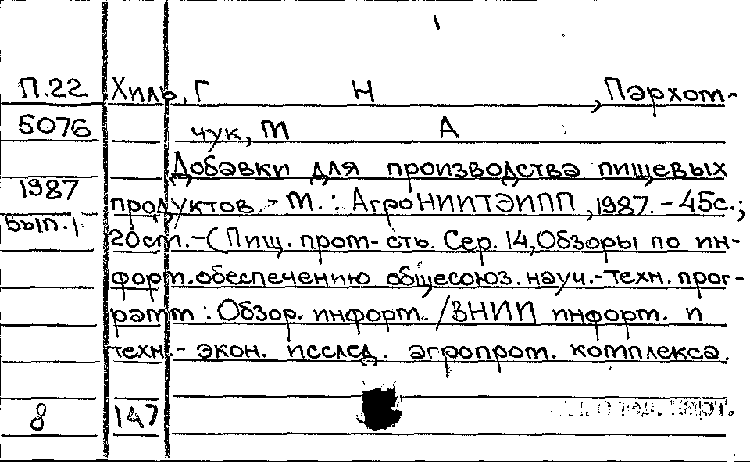 П.22 Хиль, Г Н , Пархом-
5076 чук, М А
Добавки для производства пищевых
1987 продуктов.- М.: АгроНИИТЭИПП, 1987.-45с.;
Вып.1 20см.-(Пищ. пром-сть. Сер. 14, Обзоры по ин-
форм.обеспечению общесоюз. науч.-техн. прог-
рамм : Обзор. информ. /ВНИИ информ. и
техн.- экон. исслед. агропром. комплекса.
8 147